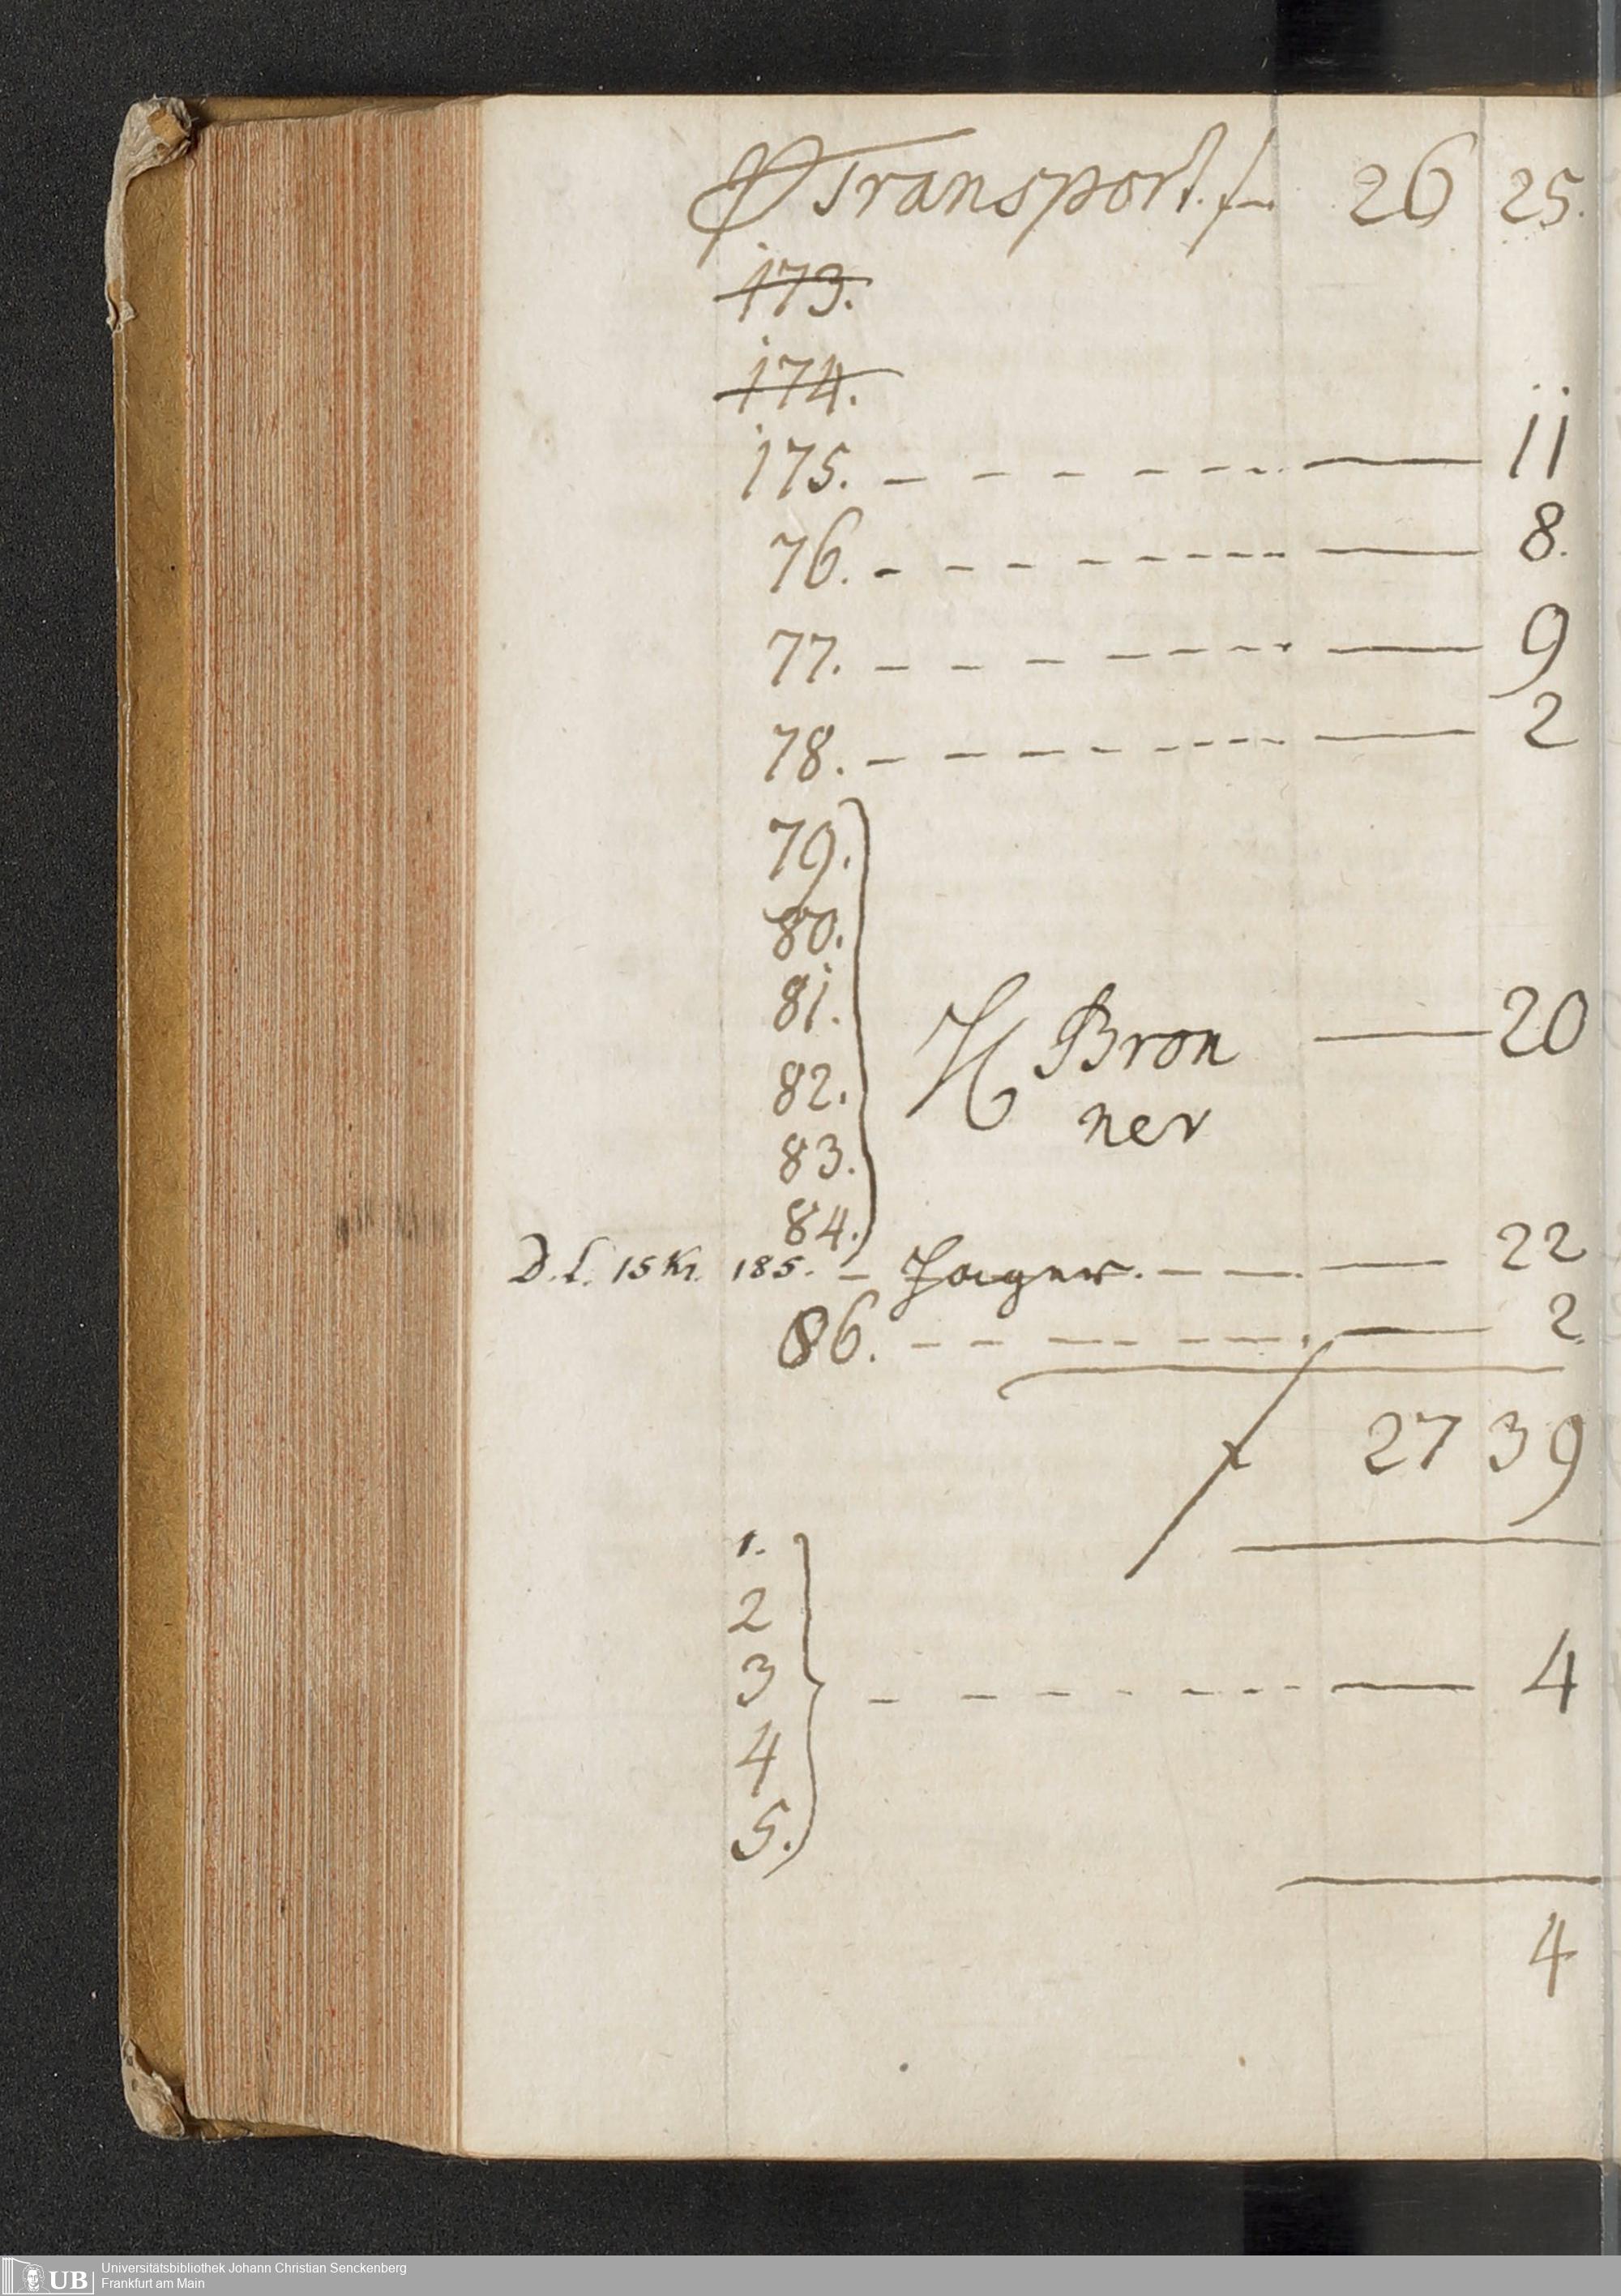 P Transport. f 26 25.
173.
174.
175. 11
76. 8.
77. 9
78. 2
79.
80.
81.
82.
83.
84.
H Bron 20
ner
D. l. 15 Kr. 185. Jager. 22
86. 2.
f 27 39
1.
2
3 4
4
5.
4
UB
Universitätsbibliothek Johann Christian Senckenberg
Frankfurt am Main